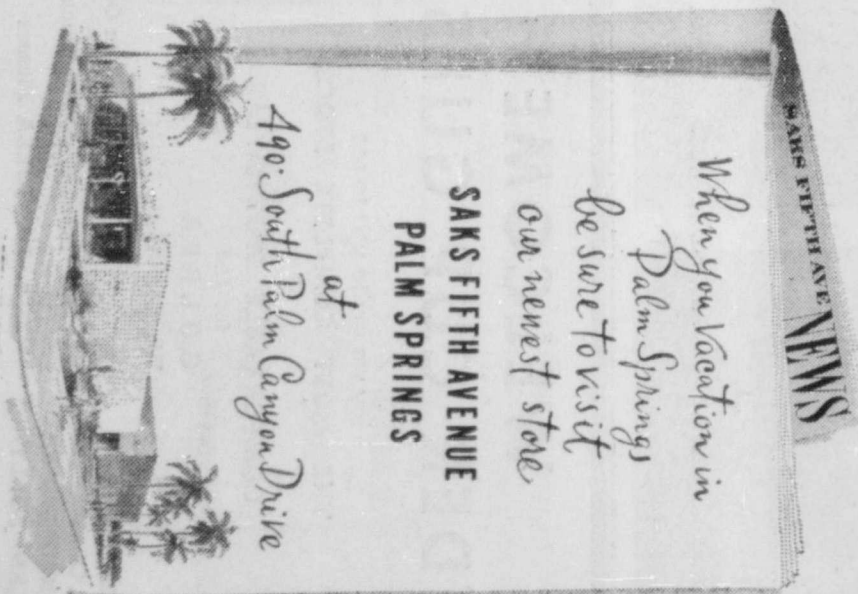 SAKS FIFTH AVE NEWS
When you Vacation in
Palm Springs
be sure to visit
our newest store
SAKS FIFTH AVENUE
PALM SPRINGS
at
490 South Palm Canyon Drive